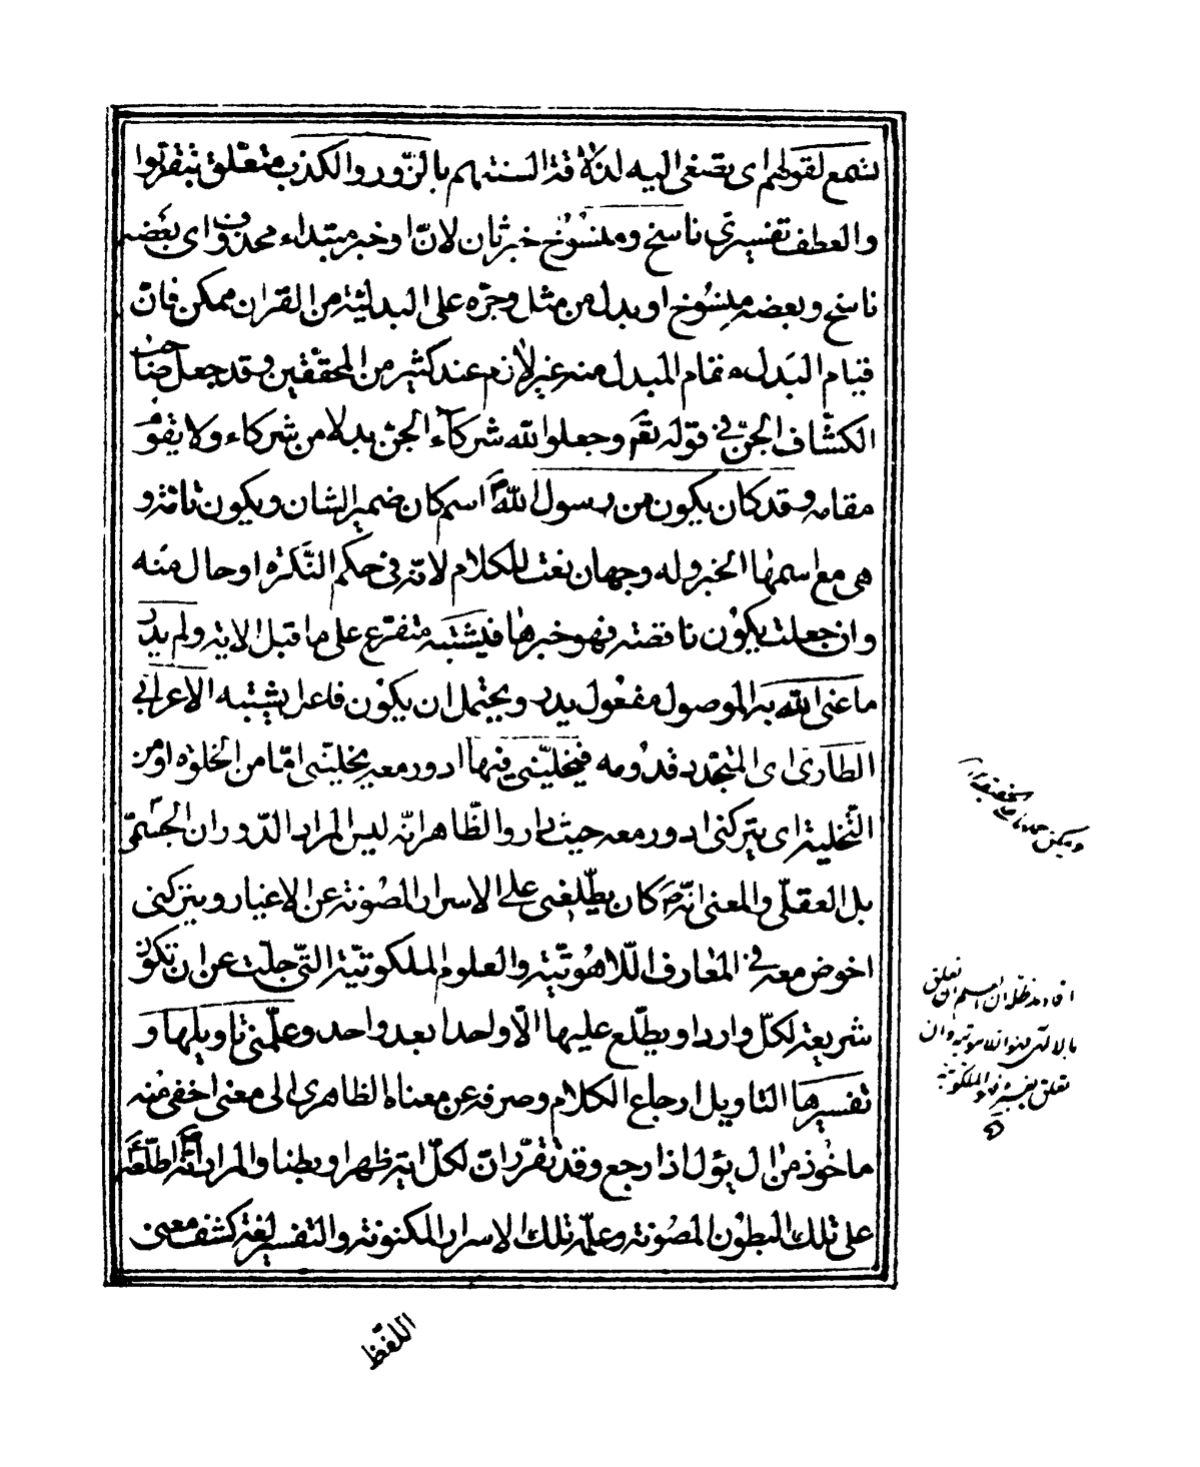 تسمع لقولهم اى تصغى اليه لذلاقة السنتهم بالزّور والكذب متعلق بتقرّبوا
والعطف تفسيرىّ ناسخ ومنسُوخ خبر ثان لانّ او خبر مبتداء محذوف اى بعضه
ناسخ وبعضه منسُوخ او بدل من مثل وجرّه على البدليّة من القران ممكن فانّ
قيام البَدل مقام المبدل منه غير لازم عند كثير من المحقّقين وقد جعل صاحب
الكشّاف الجنّ في قوله تعم وجعلوا لله شركآء الجنّ بدلا من شركاء ولا يقوم
مقامه وقد كان يكون من رسول الله ص اسم كان ضمير الشان ويكون تامّة و
هى مع اسمها الخبر وله وجهان نعت للكلام لانّه فى حكم النّكرة او حال منه
وان جعلت يكوُن ناقصة فهو خبرها فيشتبه متفرّع على ما قبل الاية ولم يدر
ما عنى الله به الموصول مفعول يدر ويحتمل ان يكوُن فاعل يشتبه الاعرابي
الطارى اى المتجدّد قدُومه فيخليّنى فيها ادور معه يخليّنى امّا من الخلوة او من
التّخلية اى يتركنى ادور معه حيث دار والظّاهر انّه ليس المراد الدّوران الجسمىّ
بل العقلّى والمعنى انّه ص كان يطّلعنى على الاسرار المصُونة عن الاغيار ويتركنى
اخوض معه في المعارف اللّاهُوتيّة والعلوم الملكوتيّة التّى جلّت عن ان تكون
شريعة لكلّ وارد او يطّلع عليها الّا واحدا بعد واحد وعلّمنى تاويلها و
تفسيرها التاويل ارجاع الكلام وصرفه عن معناه الظاهرى الى معنى اخفى منه
ماخُوذ من ال يؤل اذا رجع وقد تقرّر انّ لكلّ اية ظهرا وبطنا والمراد انّه اطلعه
على تلك البطوُن المصُونة وعلّمه تلك الاسرار المكنونة والتفسير لغة كشف معنى
اللفظ